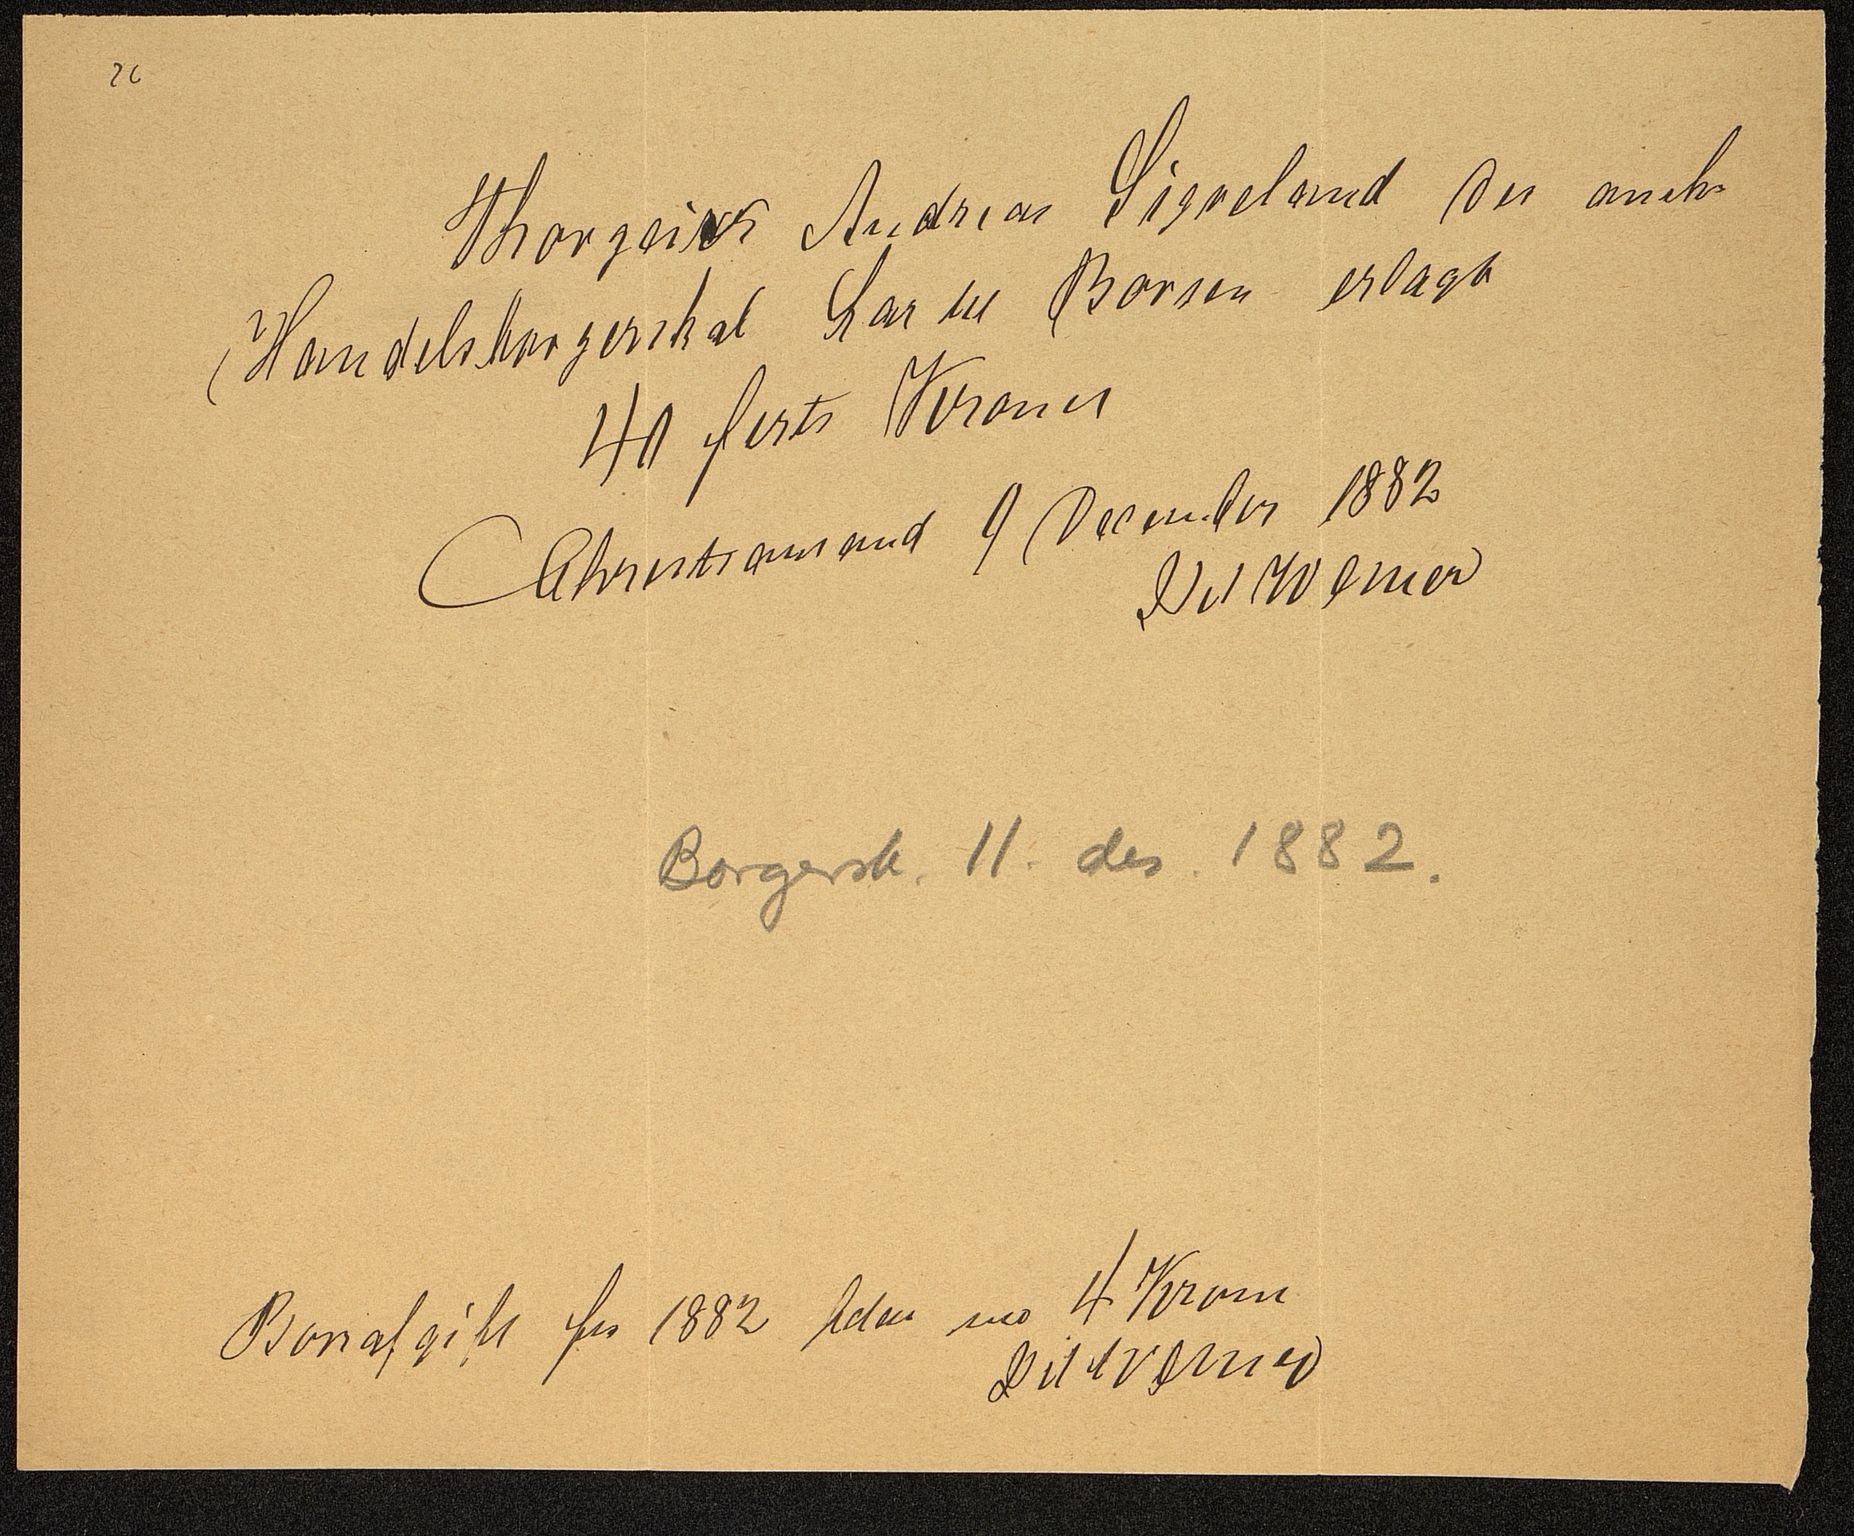 26
Thorgeirs Andreas Sigveland der ansk
Handelsborgerskab har til Børsen erlagt
40 førti Kroner
Christiansand 9 December 1882
Werner
Borgersk. 11. des. 1882.
Børsafgift for 1882 4 Kroner
Werner